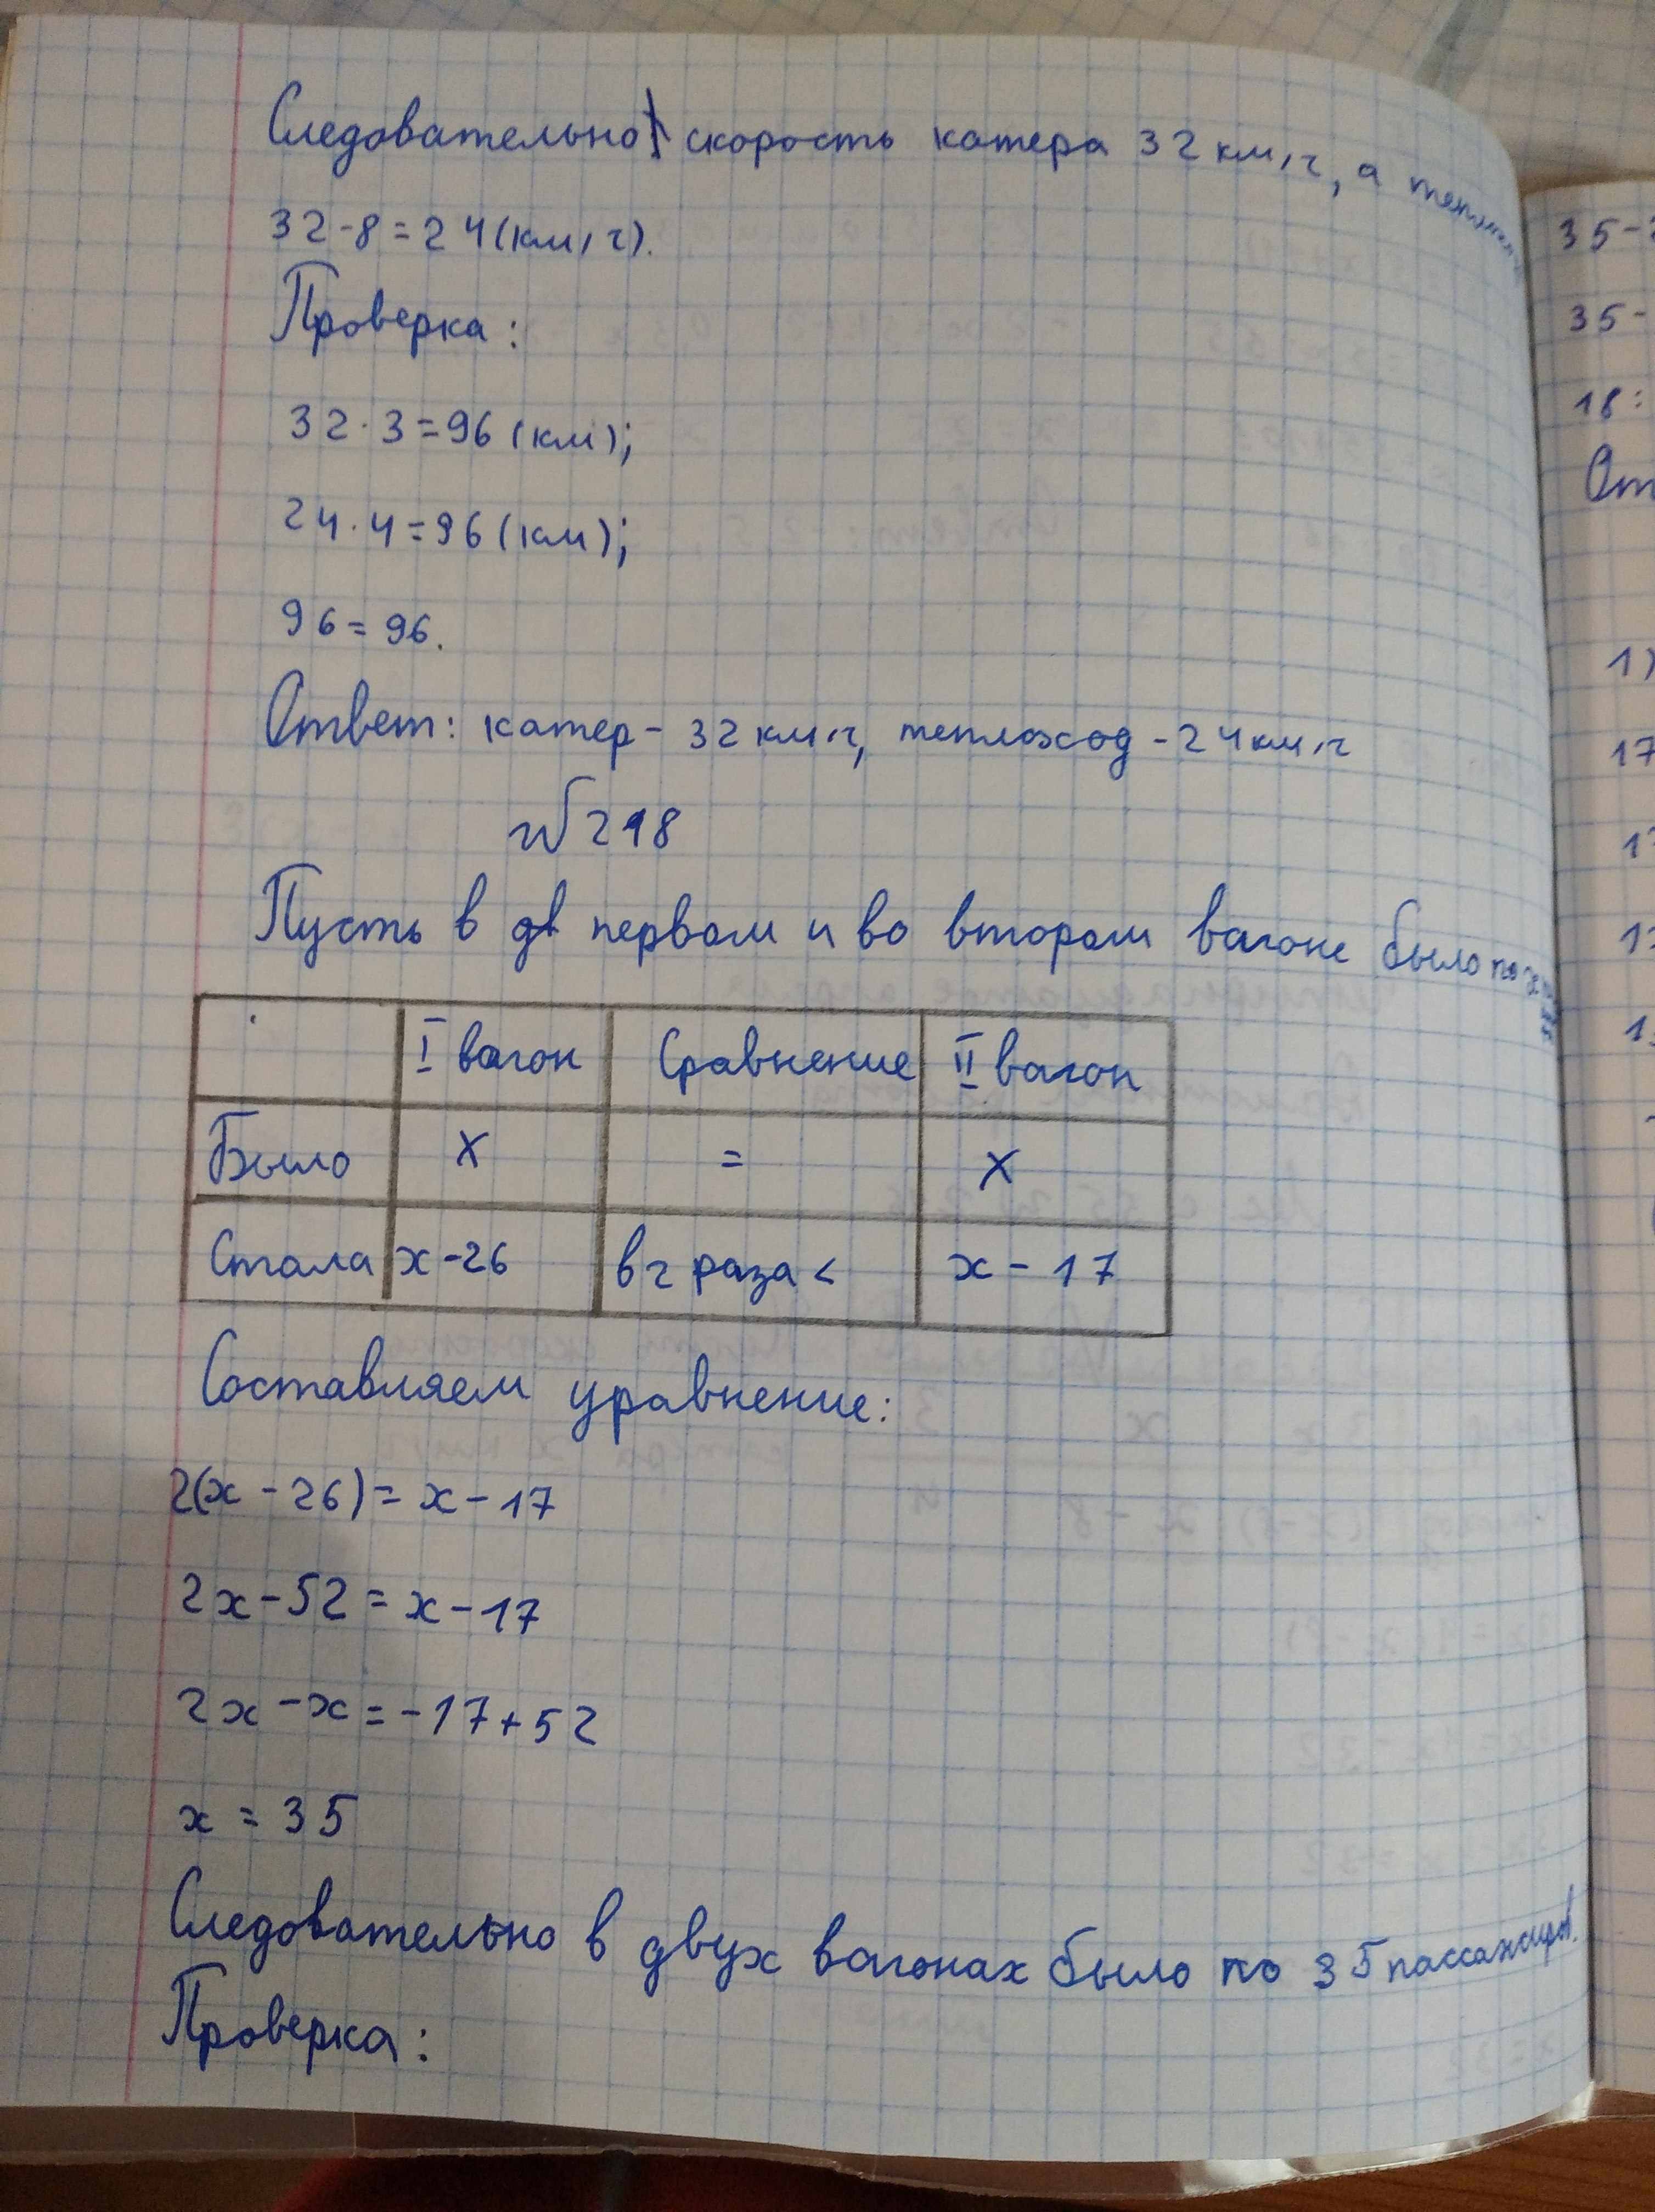 Следовательно, скорость катера 32 км/ч, а
32-8=24(км/ч).
Проверка:
32·3=96 (км);
24·4=96(км);
96=96.
Ответ: катер- 32 км/ч, теплоход -24км/ч
№218
Пусть в первом и во втором вагоне было по
I вагон Сравнение II вагон
Было х = х
Стала х-26 в 2 раза < х-17
Составляем уравнение:
2(х-26)=х-17
2х-52=х-17
2х-х=-17+52
х=35
Следовательно в двух вагонах было по 35 пассажиров.
Проверка:
35-
35-
18:
От
1)
17